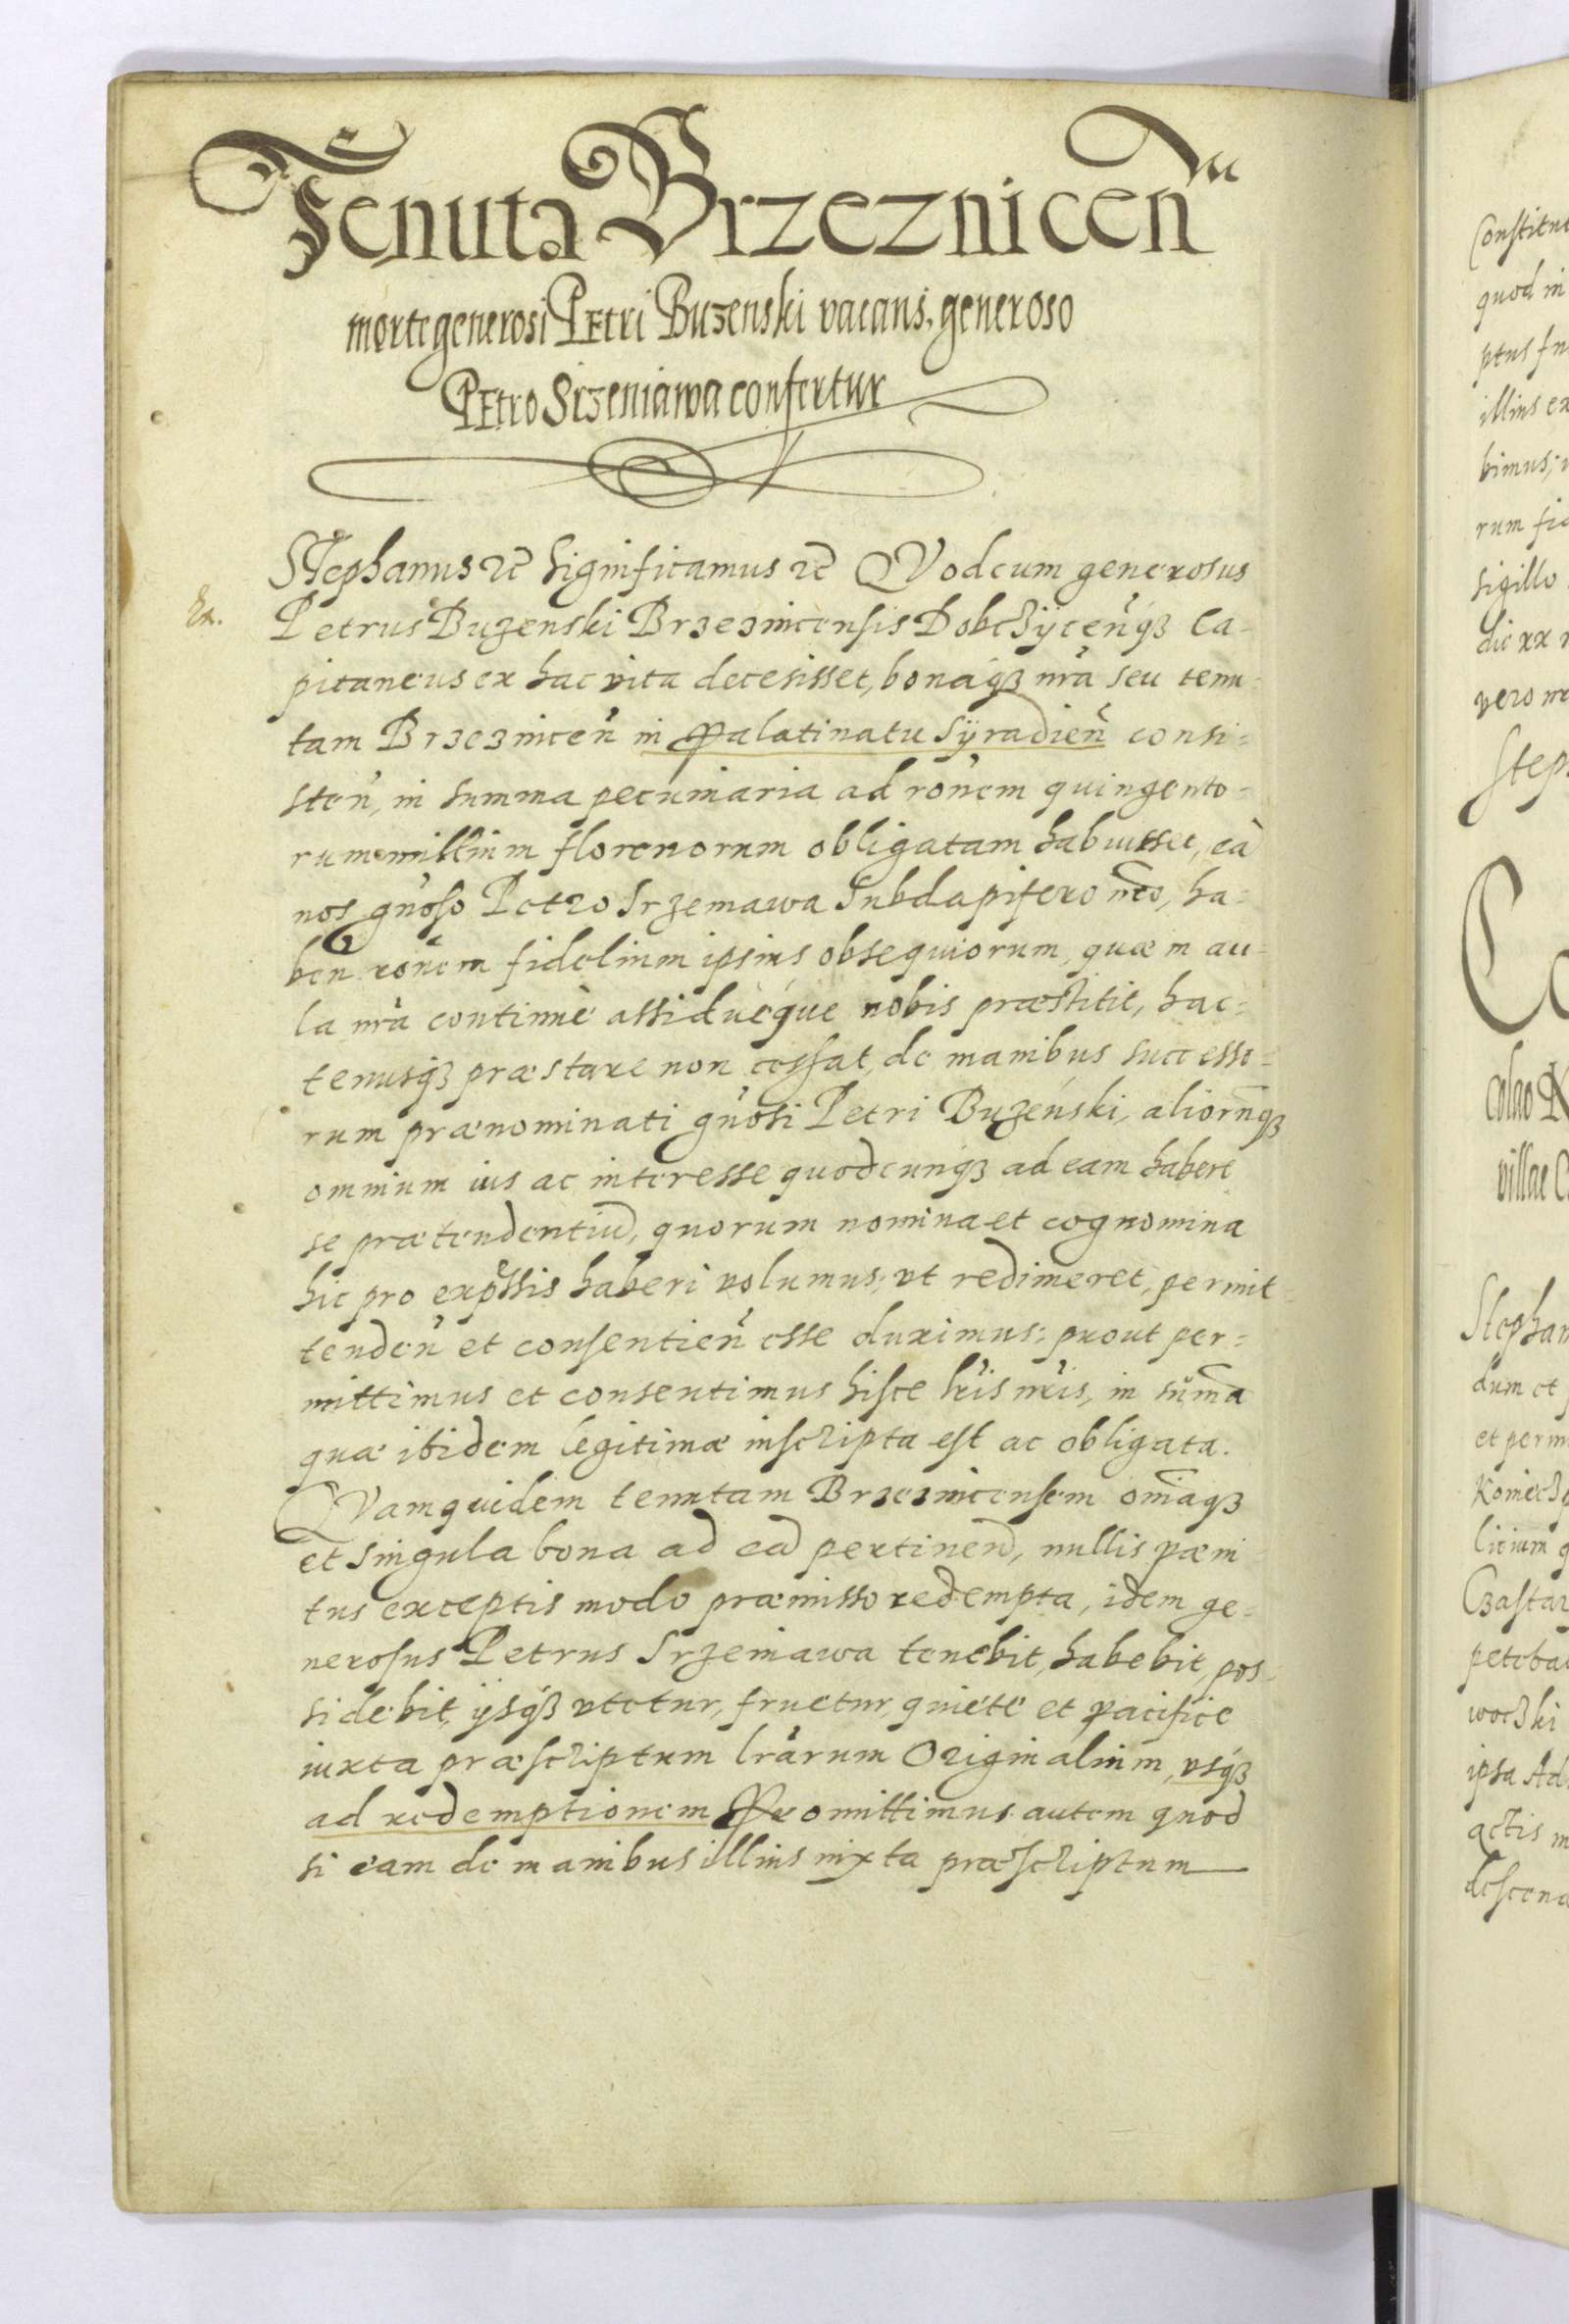 Tenuta Brzeznicen̄
morte generosi Petri Buzenski vacans, generoso
Petro Srzeniawa confertur
Stephanus ꝛc̄ Significamus ꝛc̄ QVod cum generosus
Ex.
Petrus Buzenski Brzeznicensis Dobczÿcen̄qꝫ Ca-
pitaneus ex hac vita decesisset, bonaqꝫ nr̄a seu tenu-
tam Brzeznicen̄ in Palatinatu Sÿradien̄ consi=
sten̄, in summa pecuniaria ad rōnem quingento=
rum millium florenorum obligatam habuisset, eà
nos gn̄oso Petro Srzeniawa Subdapifero nr̄o, ha=
ben̄ rōnem fidelium ipsius obsequiorum, quæ in au=
la nr̄a continuè assiduèque nobis præstitit, hac=
tenusqꝫ præstare non cessat, de manibus successo=
rum prænominati gn̄osi Petri Buzenski, aliorūqꝫ
omnium ius ac interesse quodcunqꝫ ad eam habere
se prætendentiū, quorum nomina et cognomina
hic pro exp̄ssis haberi volumus, vt redimeret, permit=
tenden̄ et consentien̄ esse duximus: prout per=
mittimus et consentimus hisce lr̄is nr̄is, in sūma
quæ ibidem legitimæ inscripta est ac obligata.
QVamquidem tenutam Brzeznicensem om̄iaqꝫ
et singula bona ad eā pertinen̄, nullis pæni=
tus exceptis modo præmisso redempta, idem ge=
nerosus Petrus Srzeniawa tenebit, habebit, pos=
sidebit, ijsqꝫ vtetur, fruetur, quiete et pacifice
iuxta præscriptum lr̄arum Originalium, vsqꝫ
ad redemptionem Promittimus autem quod
si eam de manibus illius iuxta præscriptum
Constitu
quod in
ptus fu
illius ex
bimus;
rum fid
sigillo
die xx
vero
Step
Co
colao N
villae C
Stephan
dum et
et perm
Koniecz
Czastar
petebat
woczki
ipsa Ad
actis
descend